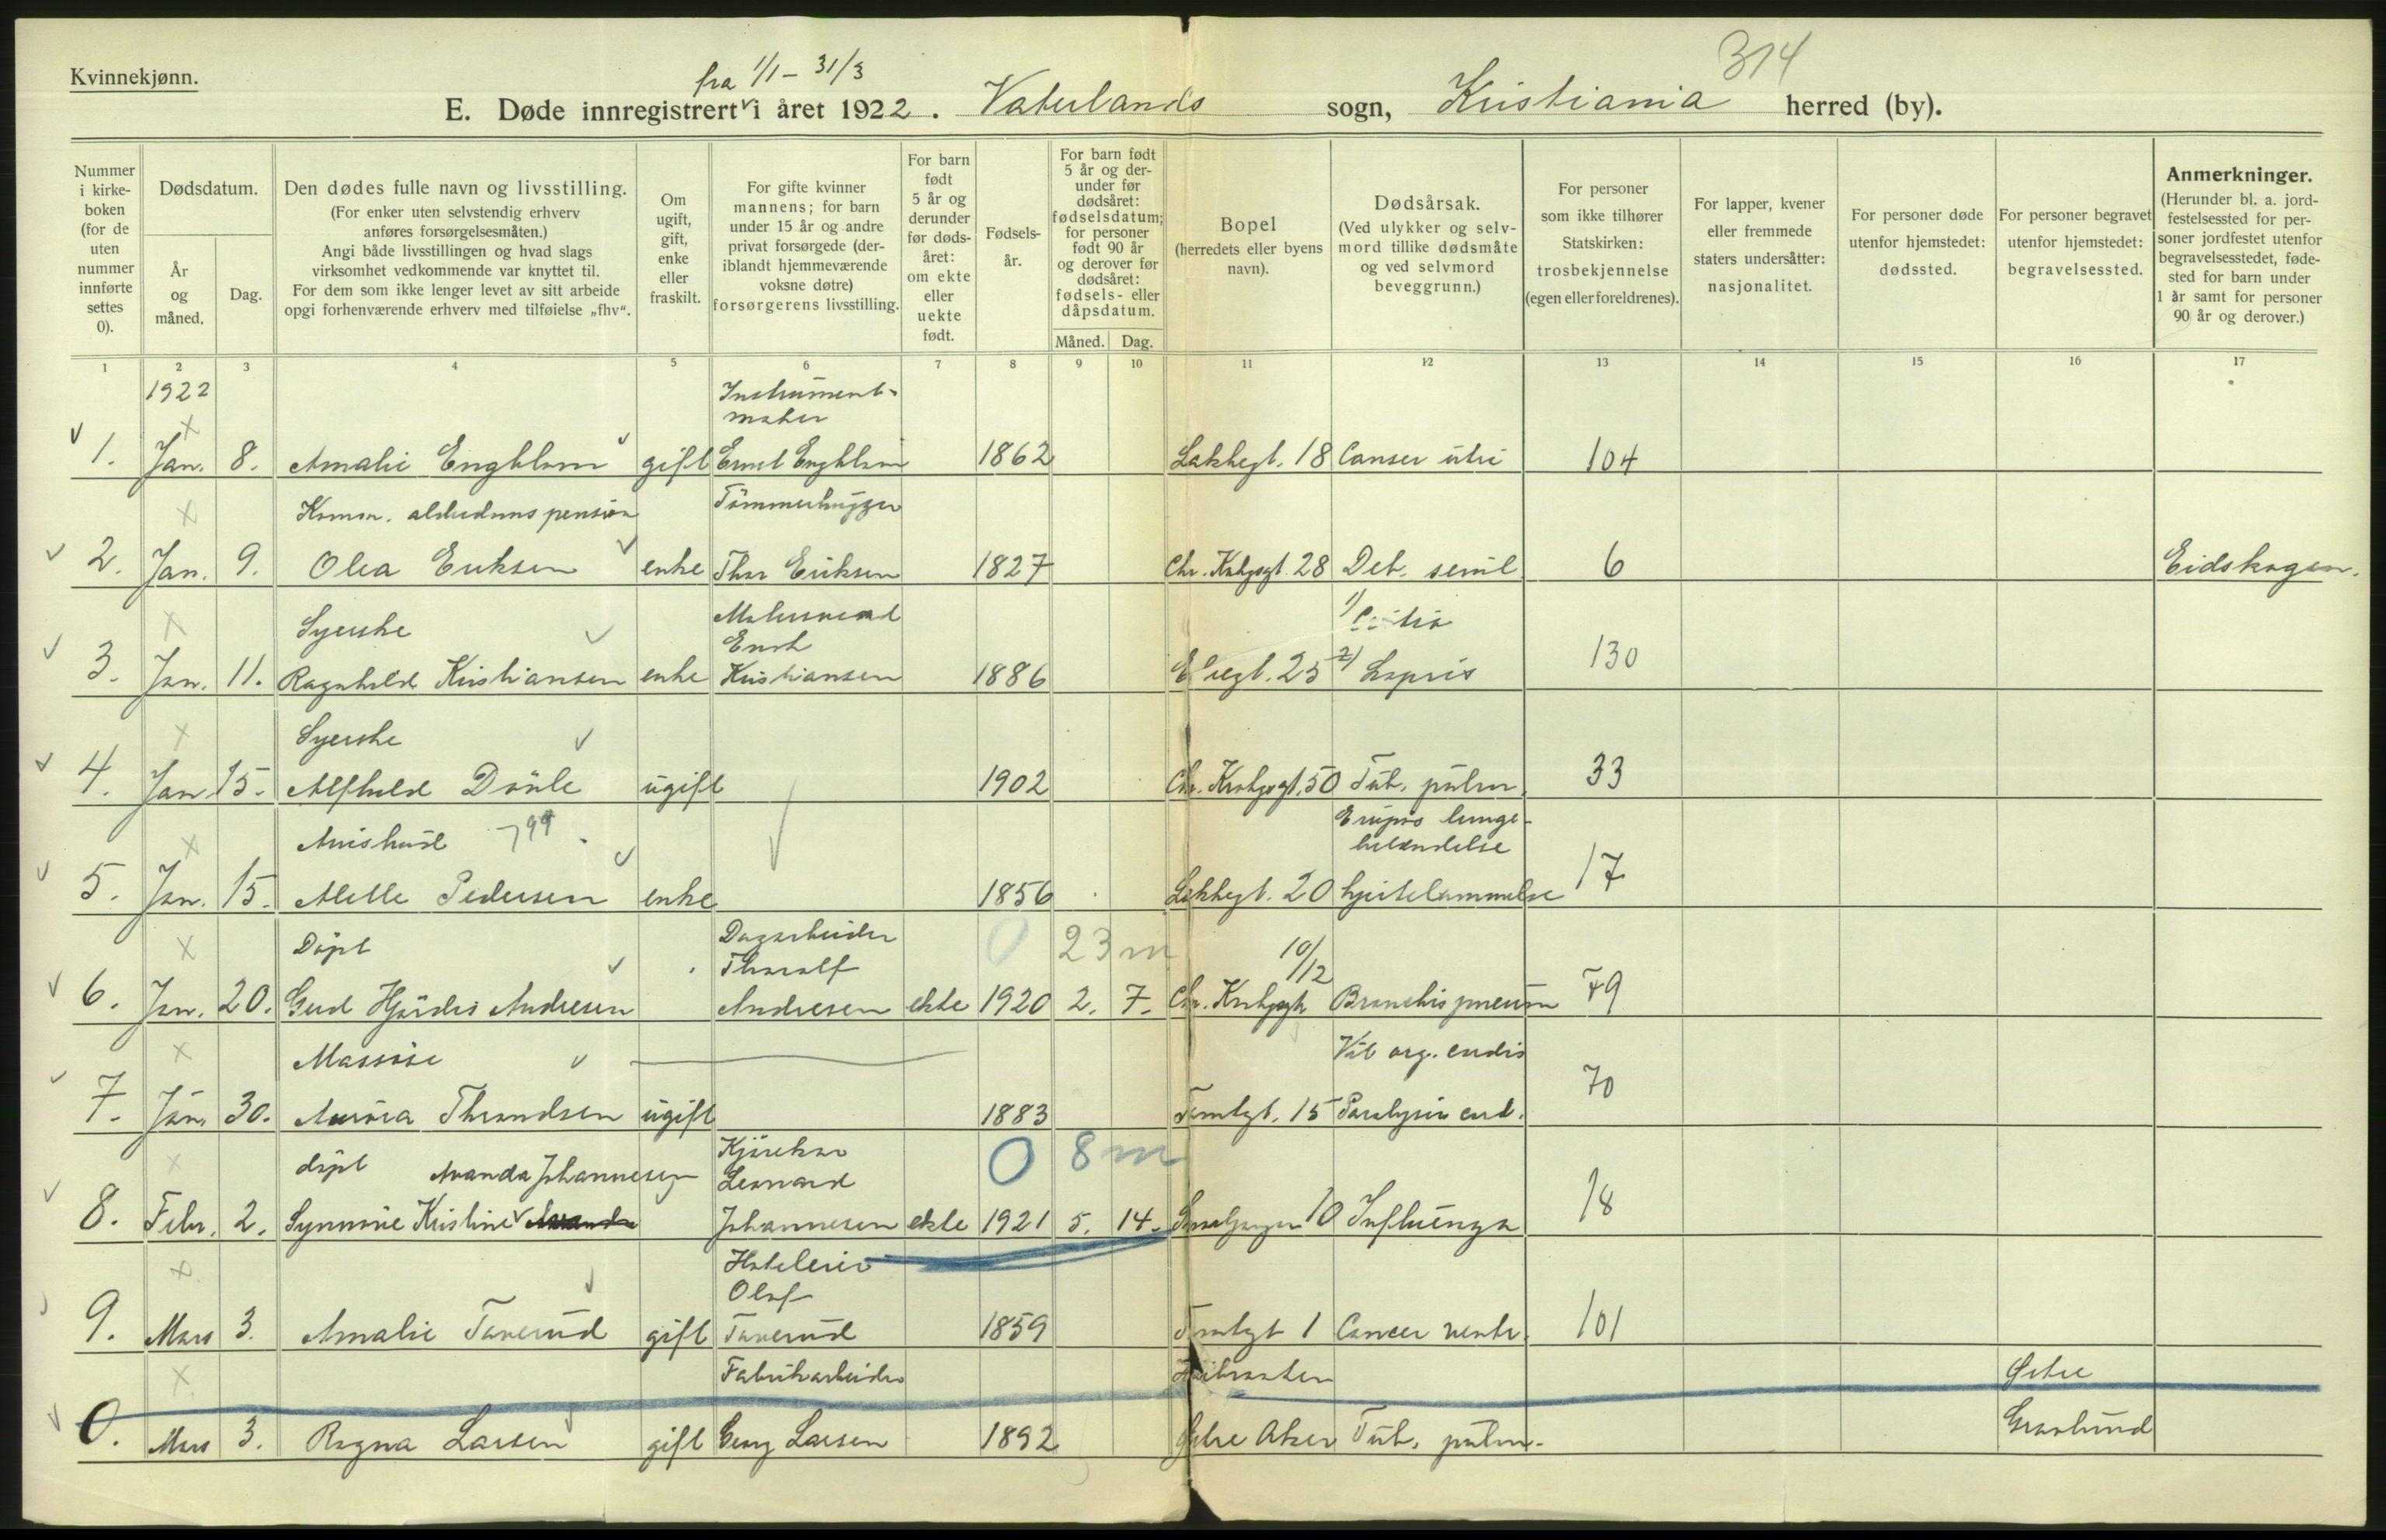 Kvinnekjønn.
314
fra 1/1 - 31/3
E. Døde innregistrert i året 1922. Vaterlands sogn, Kristiania herred (by).
Nummer i kirke-boken (for de uten nummer innførte settes 0).
Dødsdatum.
År og måned.
Dag.
Den dødes fulle navn og livsstilling.
(For enker uten selvstendig erhverv anføres forsørgelsesmåten.)
Angi både livsstillingen og hvad slags virksomhet vedkommende var knyttet til.
For dem som ikke lenger levet av sitt arbeide opgi forhenværende erhverv med tilføielse „fhv“.
Om ugift, gift, enke eller fraskilt.
For gifte kvinner mannens; for barn under 15 år og andre privat forsørgede (der-iblandt hjemmeværende voksne døtre) forsørgerens livsstilling.
For barn født 5 år og derunder før døds-året: om ekte eller uekte født.
Fødsels-år.
For barn født 5 år og der-under før dødsåret: fødselsdatum; for personer født 90 år og derover før dødsåret: fødsels- eller dåpsdatum.
Måned.
Dag.
Bopel
(herredets eller byens navn).
Dødsårsak.
(Ved ulykker og selv-mord tillike dødsmåte og ved selvmord beveggrunn.)
For personer som ikke tilhører Statskirken: trosbekjennelse (egen eller foreldrenes).
For lapper, kvener eller fremmede staters undersåtter: nasjonalitet.
For personer døde utenfor hjemstedet: dødssted.
For personer begravet utenfor hjemstedet: begravelsessted.
Anmerkninger.
(Herunder bl. a. jord-festelsessted for per-soner jordfestet utenfor begravelsesstedet, føde-sted for barn under 1 år samt for personer 90 år og derover.)
1 2 3 4 5 6 7 8 9 10 11 12 13 14 15 16 17
1922
Instrument-
maker
1. Jan. 8. Amalie Engblom gift Ernst Engblom 1862 Lakkegt. 18 Canser utri 104
Komm. alderdomspension Tømmerhugger
2. Jan. 9. Olea Eriksen enke Thor Eriksen 1827 Chr. Krohgsgt. 28 Deb. senil 6 Eidskogen.
Syerske Malersvend 1)
3. Jan. 11. Ragnhild Kristiansen enke Kristiansen 1886 Elvegt. 25 2) 130
Syerske
4. Jan 15. Alfhild Døhle ugift 1902 Chr. Krohgsgt. 50 Tub. pulm. 33
Avisbud 799 Crupøs lunge-
betændelse
5. Jan. 15. Mette Pedersen enke 1856 Lakkegt. 20 hjertelammelse 17
Døpt Dagarbeider 0 23 m
Thoralf 10/12
6. Jan. 20. Gerd Hjørdis Andresen Andresen ekte 1920 2. 7. Chr. Krohgsgt. Bronchispneum 49
Massøse Vit. org. cordis
7. Jan. 30. Aurora Thrandsen ugift 1883 Tomtegt. 15 Paralysis cord. 70
døpt Avanda Johannesen Kjørekar 0 8 m
Leonard
8. Febr. 2. Synnøve Kristine Johannesen ekte 1921 5. 14. 10 Influenza 18
Hoteleier
Olaf
9. Mars 3. Amalie Tanerud gift Tanerud 1859 Tomtegt 1 Cancer ventr. 101
Fabrikarbeider Østre
0. Mars 3. Ragna Larsen gift Georg Larsen 1892 Østre Aker Tub. pulm. Gravlund